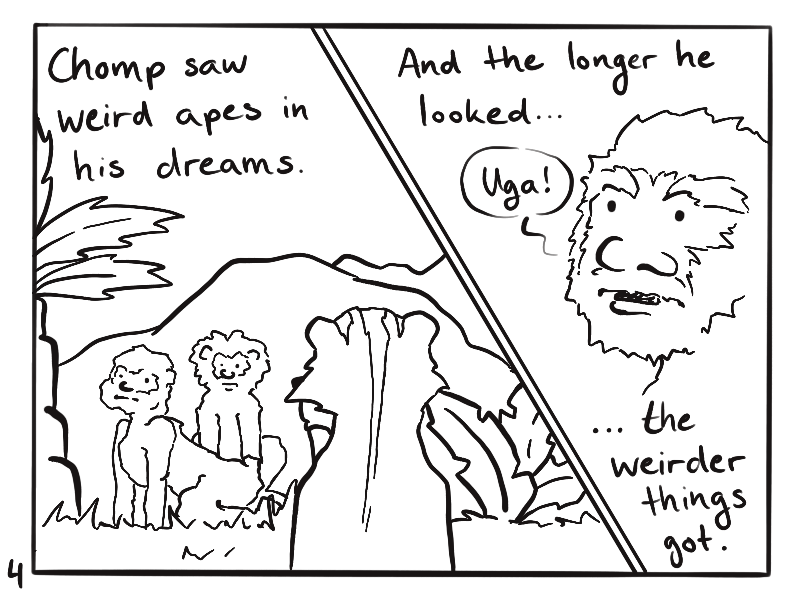 Chomp saw
weird apes in
his dreams.
And the longer he
looked...
Uga!
... the
weirder
things
got.
4